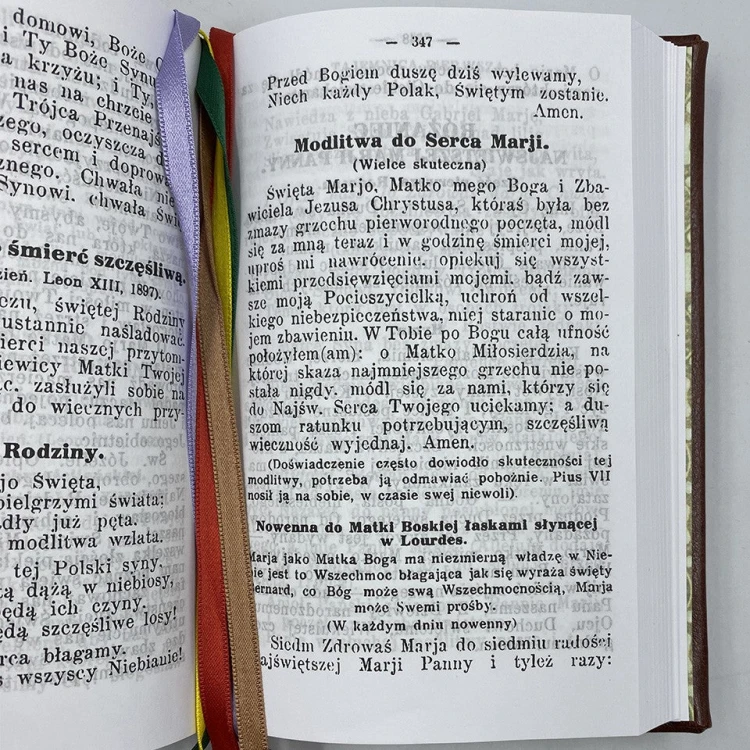 domowi, Boże
i Ty Boże Synu
krzyżu; i Ty,
nas na chrzcie
Trójca Przenajś
zego, oczyszcza
sercem i doprowa
cznego. Chwała nie
Synowi. chwała Świ
śmierć szczęśliwą.
zień. Leon XIII, 1897).
czu, świętej Rodziny
ustannie naśladować.
ierci naszej przytom-
iewicy Matki Twojej
c. zasłużyli sobie na
do wiecznych przy-
Rodziny.
jo Święta,
pielgrzymi świata:
adły już pęta.
modlitwa wzlata.
tej Polski syny.
ą dążą w niebiosy,
ędą ich czyny.
ędą szczęśliwe losy!
rca błagamy.
s wszyscy Niebianie!
— 347 —
Przed Bogiem duszę dziś wylewamy,
Niech każdy Polak, Świętym zostanie.
Amen.
Modlitwa do Serca Marji.
(Wielce skuteczna)
Święta Marjo, Matko mego Boga i Zba-
wiciela Jezusa Chrystusa, któraś była bez
zmazy grzechu pierworodnego poczęta, módl
się za mną teraz i w godzinę śmierci mojej,
uproś mi nawrócenie. opiekuj się wszyst-
kiemi przedsięwzięciami mojemi. bądź zaw-
sze moją Pocieszycielką, uchroń od wszel-
kiego niebezpieczeństwa, miej staranie o mo-
jem zbawieniu. W Tobie po Bogu całą ufność
położyłem(am): o Matko Miłosierdzia, na
której skaza najmniejszego grzechu nie po-
stała nigdy. módl się za nami, którzy się
do Najśw. Serca Twojego uciekamy; a du-
szom ratunku potrzebującym, szczęśliwą
wieczność wyjednaj. Amen.
(Doświadczenie często dowiodło skuteczności tej
modlitwy, potrzeba ją odmawiać pobożnie. Pius VII
nosił ją na sobie, w czasie swej niewoli).
Nowenna do Matki Boskiej łaskami słynącej
w Lourdes.
Marja jako Matka Boga ma niezmierną władzę w Nie-
bie jest to Wszechmoc błagająca jak się wyraża święty
Bernard, co Bóg może swą Wszechmocnością, Marja
może Swemi prośby.
(W każdym dniu nowenny)
Siedm Zdrowaś Marja do siedmiu radości
Najświętszej Marji Panny i tyleż razy: